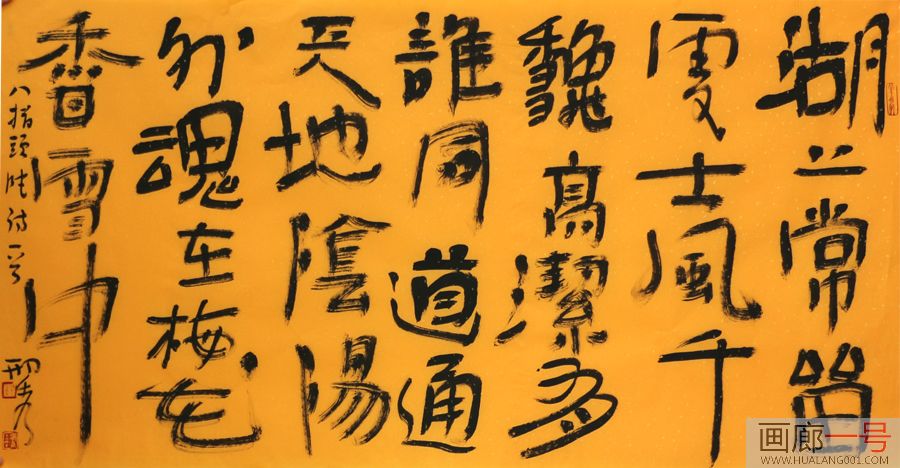 湖上常留
處士風千
龝高潔有
誰同道通
天地陰陽
外魂在梅花
香雪中
八指頭陀詩一首
画廊一号
WWW.HUALANG001.COM